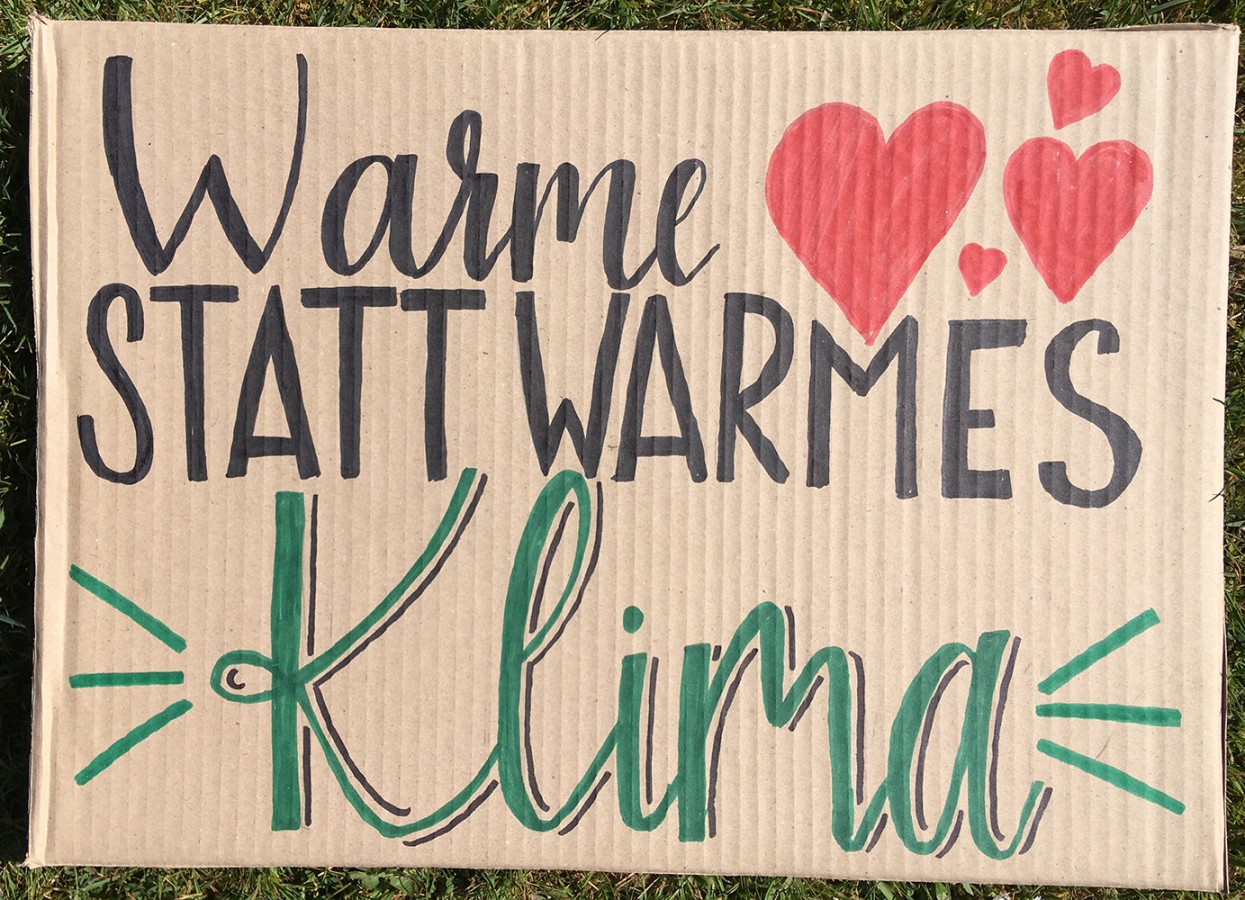 Warme
STATT WARMES
Klima